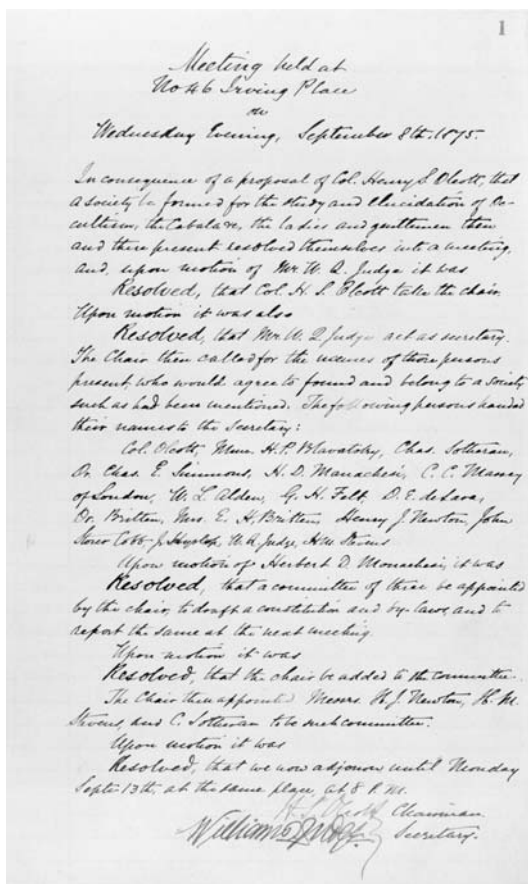 1
Meeting held at
No 46 Irving Place
on
Wednesday Evening, September 8th. 1875.
In consequence of a proposal of Col. Henry S. Olcott, that
a society be formed for the study and elucidation of Oc-
cultism, the Cabala &c, the ladies and gentlemen then
and there present resolved themselves into a meeting,
and, upon motion of Mr. W. Q. Judge it was
Resolved, that Col. H. S. Olcott take the chair.
Upon motion it was also
Resolved, that Mr. W. Q. Judge act as secretary.
The Chair then called for the names of those persons
present, who would agree to found and belong to a society
such as had been mentioned. The following persons handed
their names to the secretary:
Col. Olcott, Mme. H. P. Blavatsky, Chas. Sotheran,
Dr. Chas. E. Simmons, H. D. Monachesi, C. C. Massey
of London, W. L. Alden, G. H. Felt, D. E. de Lara,
Dr. Britten, Mrs. E. H. Britten, Henry J. Newton, John
Storer Cobb, J. Hyslop, W. Q. Judge, H. M. Stevens
Upon motion of Herbert D. Monachesi, it was
Resolved, that a committee of three be appointed
by the chair, to draft a constitution and by-laws, and to
report the same at the next meeting.
Upon motion it was
Resolved, that the chair be added to the committee.
The Chair then appointed Messrs. H. J. Newton, H. M.
Stevens, and C. Sotheran to be such committee.
Upon motion it was
Resolved, that we now adjourn until Monday
Septr 13th, at the same place, at 8 P.M.
H. S. Olcott Chairman.
William Q Judge Secretary.